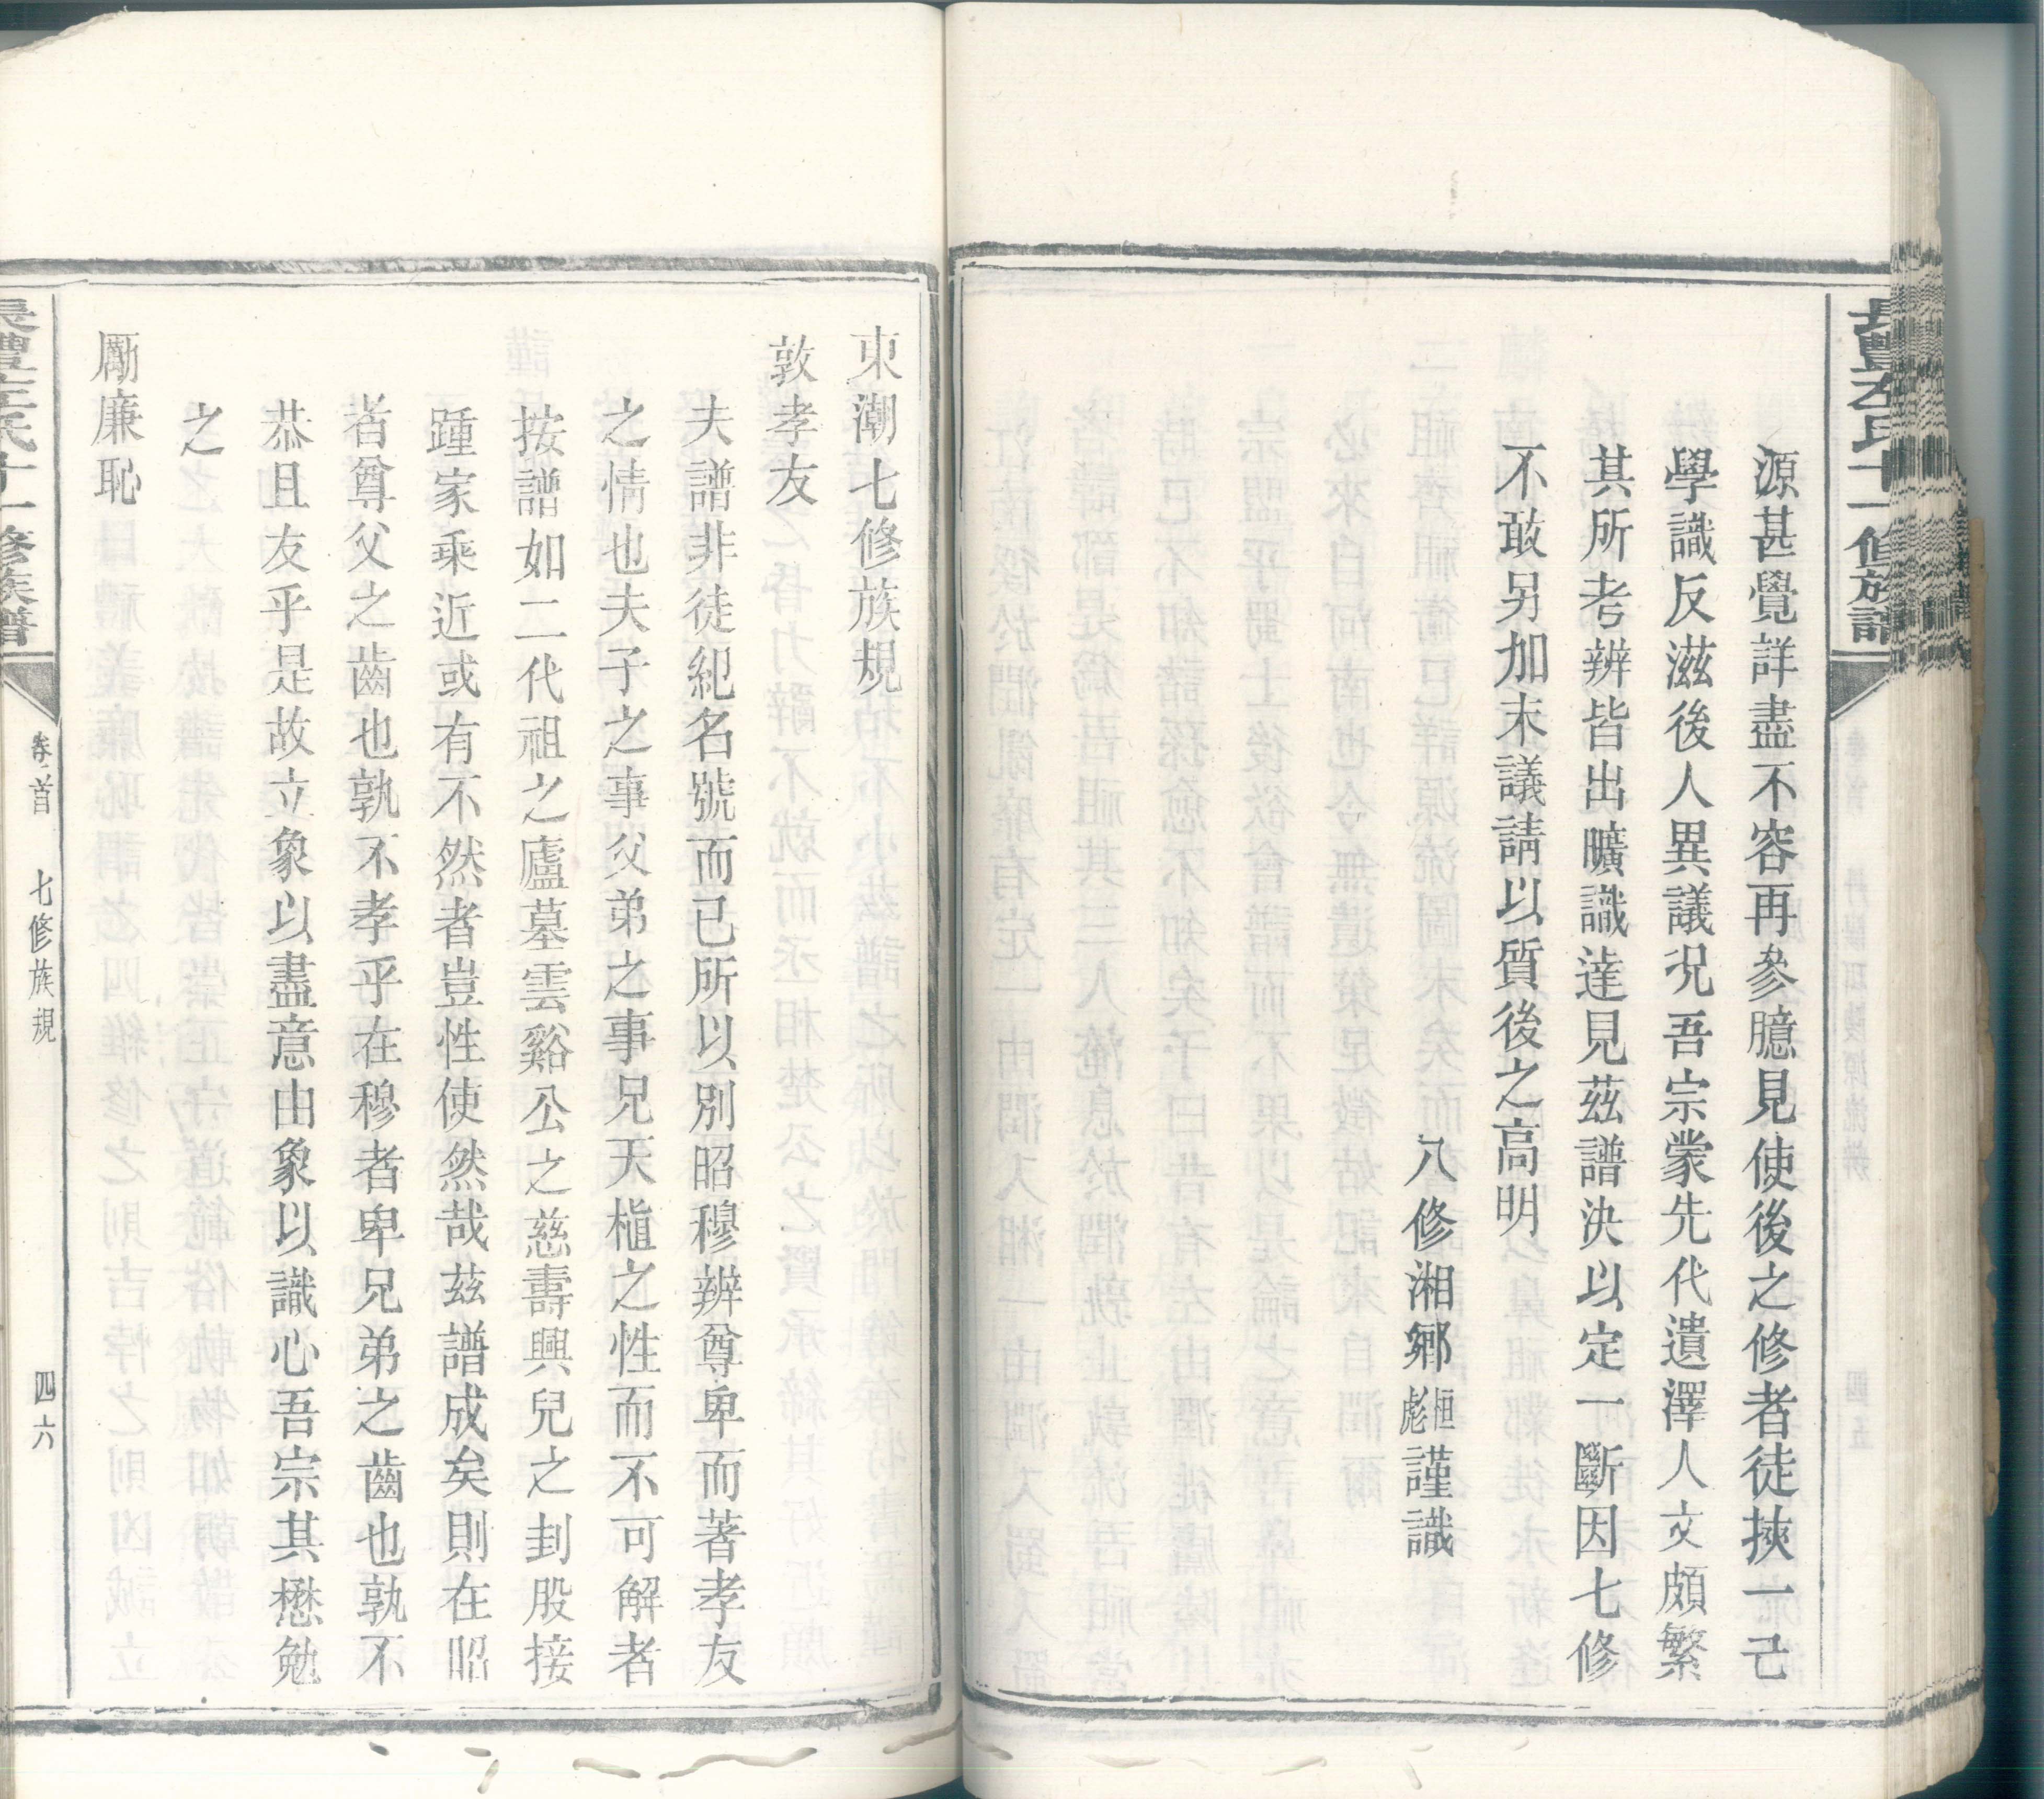 源甚覺詳盡不容再參臆見使後之修者徒挾一己
學識反滋後人異議况吾宗蒙先代遺澤人文頗繁
其所考辨皆出曠識達見茲譜決以定一斷因七修
不敢另加末議請以質後之高明
八修湘鄉恒彪謹識
東湖七修族規
敦孝友
夫譜非徒紀名號而已所以別昭穆辨尊卑而著孝友
之情也夫子之事父弟之事兄天植之性而不可解者
按譜如二代祖之廬墓雲谿公之慈壽興兒之刲股接
踵家乘近或有不然者豈性使然哉茲譜成矣則在昭
者尊父之齒也孰不孝乎在穆者卑兄弟之齒也孰不
恭且友乎是故立象以盡意由象以識心吾宗其懋勉
之
勵廉恥
卷首
七修族規
四六